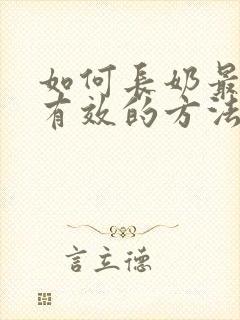 如何長奶最
有效的方法
言立德